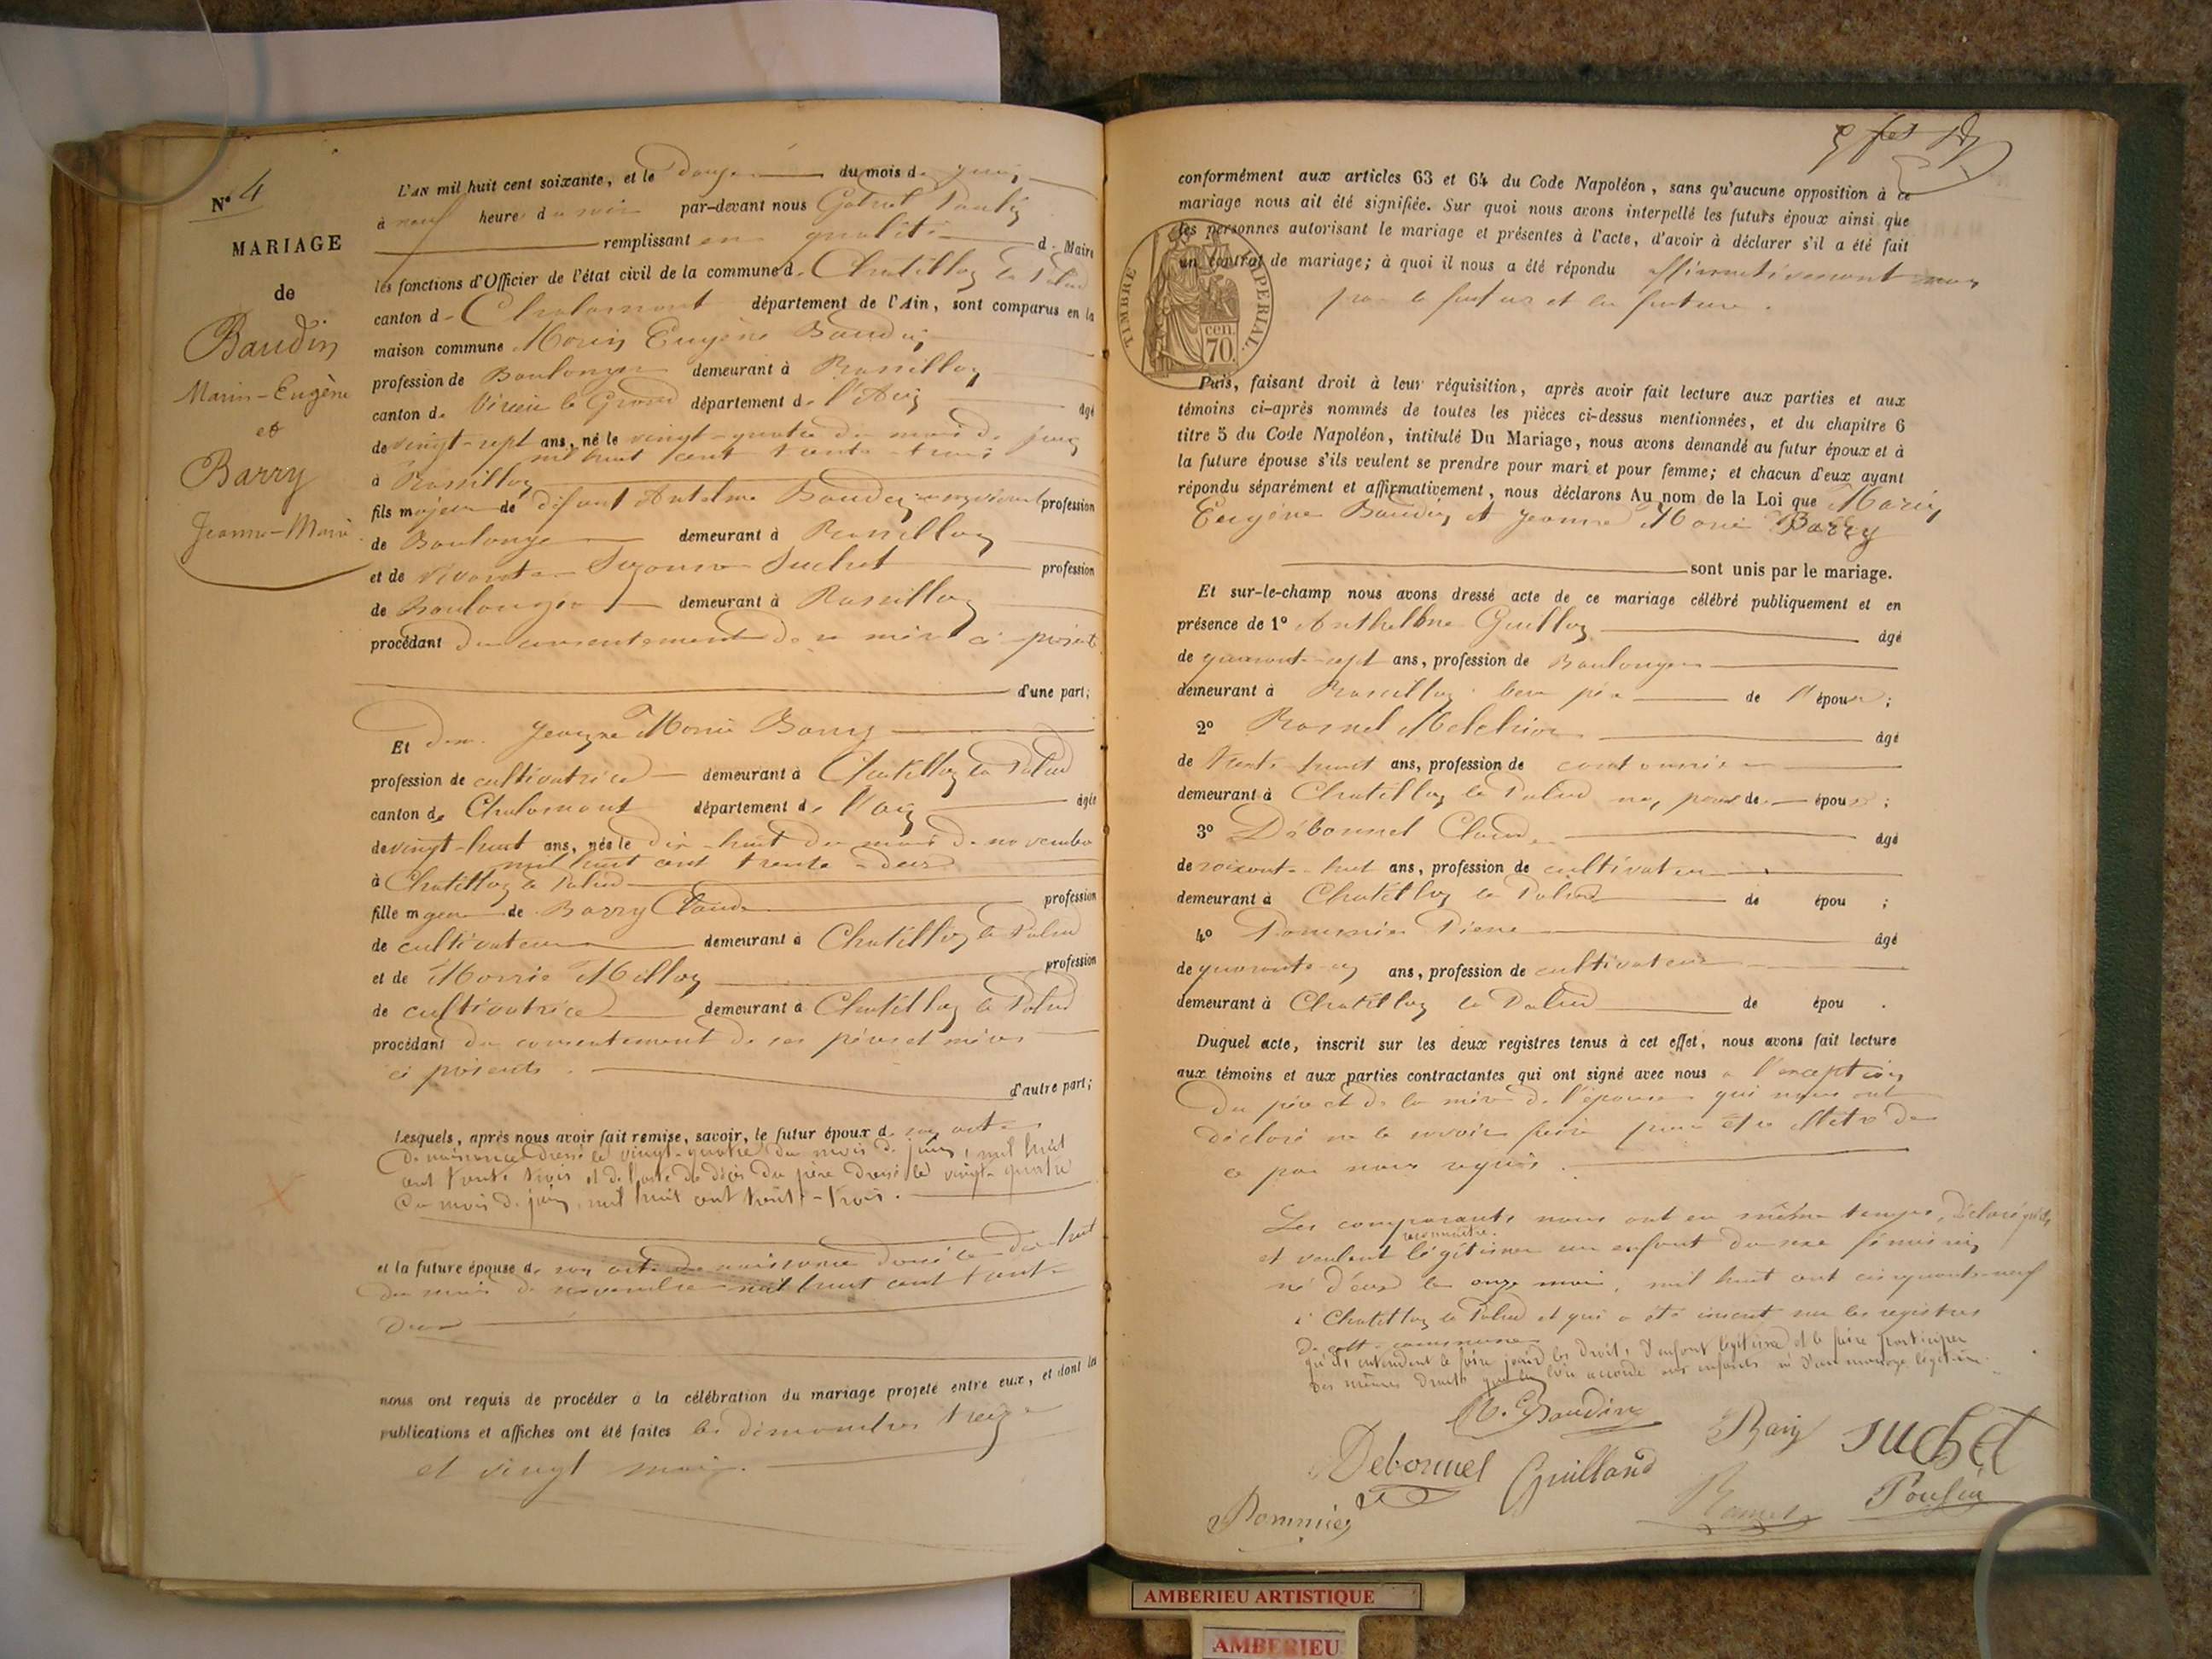 N° 4
MARIAGE
de
Baudin
Marin-Eugène
et
Barry
Jeanne-Marie
L'AN mil huit cent soixante, et le douze du mois de juin
à neuf heure du soir par-devant nous Gabriel
remplissant en qualité de Maire
les fonctions d'Officier de l'état civil de la commune de Chatillon la Palud
canton de Chalamont département de l'Ain, sont comparus en la
maison commune Marin Eugène Baudin
profession de Boulanger demeurant à Rossillon
canton de Virieu le Grand département de l'Ain âgé
de vingt-sept ans, né le vingt-quatre du mois de juin
mil huit cent trente-trois
à Rossillon
fils majeur de défunt Antelme Baudin en son vivant profession
de Boulanger demeurant à Rossillon
et de vivante Suzanne Suchet profession
de Boulangère demeurant à Rossillon
procédant du consentement de sa mère ci-présente
d'une part;
Et dem. Jeanne Marie Barry
profession de cultivatrice demeurant à Chatillon la Palud
canton de Chalamont département de l'Ain âgée
de vingt-huit ans, née le dix-huit du mois de novembre
mil huit cent trente-deux
à Chatillon la Palud
fille majeure de Barry Claude profession
de cultivateur demeurant à Chatillon la Palud
et de Marie Millon profession
de cultivatrice demeurant à Chatillon la Palud
procédant du consentement de ses père et mère
ci présents.
d'autre part;
Lesquels, après nous avoir fait remise, savoir, le futur époux de son acte
de naissance dressé le vingt-quatre du mois de juin, mil huit
cent trente trois et de l'acte de décès du père dressé le vingt-quatre
du mois de juin, mil huit cent trente-trois.
et la future épouse de son acte de naissance dressé le dix-huit
du mois de novembre mil huit cent trente
deux
nous ont requis de procéder à la célébration du mariage projeté entre eux, et dont les
publications et affiches ont été faites les dimanches treize
et vingt mai.
conformément aux articles 63 et 64 du Code Napoléon, sans qu'aucune opposition à ce
mariage nous ait été signifiée. Sur quoi nous avons interpellé les futurs époux ainsi que
les personnes autorisant le mariage et présentes à l'acte, d'avoir à déclarer s'il a été fait
un contrat de mariage; à quoi il nous a été répondu affirmativement non
par le futur et la future.
TIMBRE IMPERIAL
70 cen.
Puis, faisant droit à leur réquisition, après avoir fait lecture aux parties et aux
témoins ci-après nommés de toutes les pièces ci-dessus mentionnées, et du chapitre 6
titre 5 du Code Napoléon, intitulé Du Mariage, nous avons demandé au futur époux et à
la future épouse s'ils veulent se prendre pour mari et pour femme; et chacun d'eux ayant
répondu séparément et affirmativement, nous déclarons Au nom de la Loi que Marin
Eugène Baudin et Jeanne Marie Barry
sont unis par le mariage.
Et sur-le-champ nous avons dressé acte de ce mariage célébré publiquement et en
présence de 1° Anthelme Guillon âgé
de quarante-sept ans, profession de Boulanger
demeurant à Rossillon beau père de l'époux;
2° Ramel Melchior âgé
de trente huit ans, profession de cordonnier
demeurant à Chatillon la Palud non parent de épouse;
3° Débonnel Claude âgé
de soixante-huit ans, profession de cultivateur
demeurant à Chatillon la Palud de épou ;
4° Pommier Pierre âgé
de quarante- ans, profession de cultivateur
demeurant à Chatillon la Palud de épou .
Duquel acte, inscrit sur les deux registres tenus à cet effet, nous avons fait lecture
aux témoins et aux parties contractantes qui ont signé avec nous à l'exception
du père et de la mère de l'épouse qui nous ont
déclaré ne le savoir faire pour être illétrés de
ce par nous requis.
Les comparants nous ont en même temps, déclaré qu'ils
reconnaître
et veulent légitimer un enfant du sexe féminin
né d'eux le onze mai, mil huit cent cinquante-neuf
à Chatillon la Palud et qui a été inscrit sur les registres
de cette commune
qu'ils entendent le faire jouir des droits d'enfant légitime et le faire participer
des mêmes droits que la loi accorde aux enfants né d'un mariage légitime.
Baudin
Barry
suchet
Debonnel
Guilland
Pommier
Ramel
AMBERIEU ARTISTIQUE
AMBERIEU